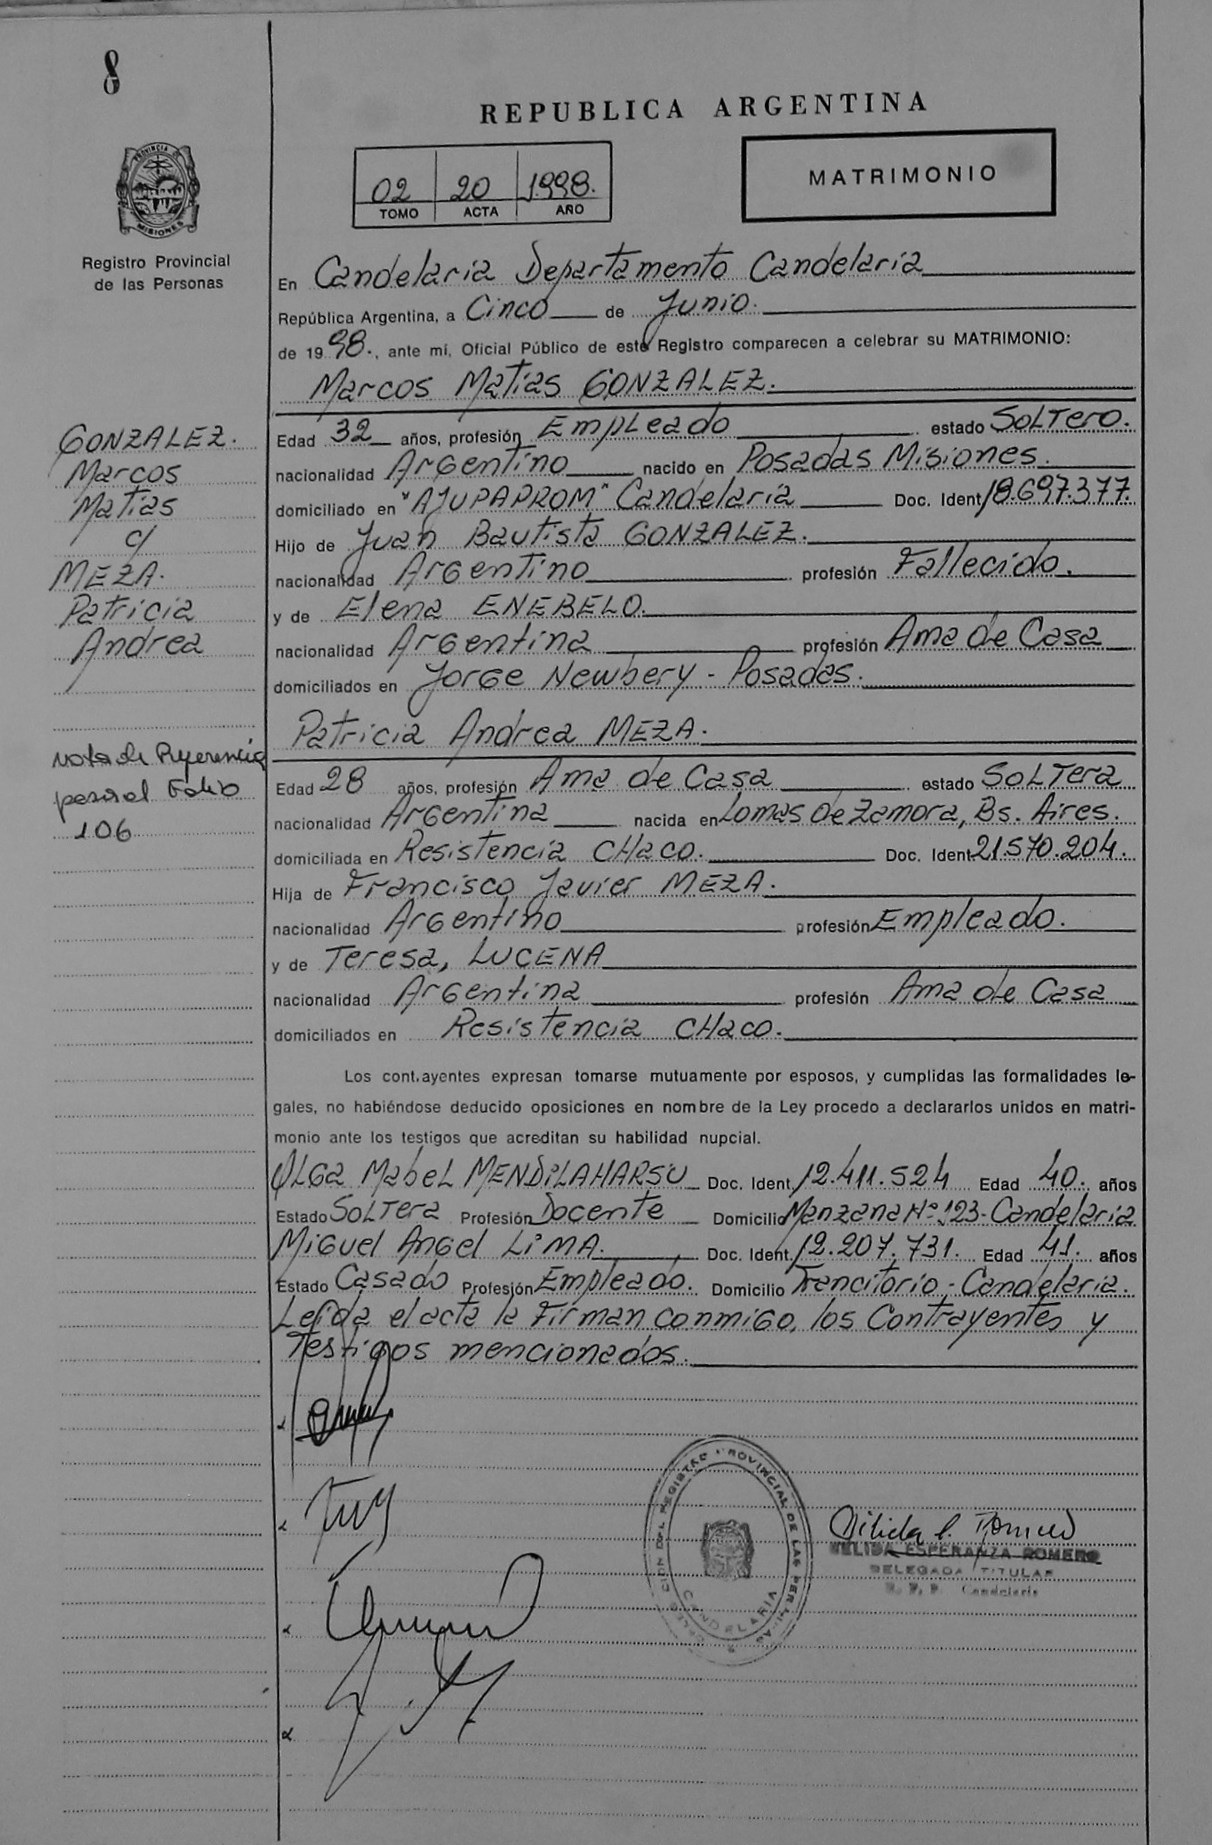 8
REPUBLICA ARGENTINA
02 20 1.998.
TOMO ACTA AÑO
MATRIMONIO
PROVINCIA DE
MISIONES
Registro Provincial
de las Personas
En Candelaria Departamento Candelaria
República Argentina, a Cinco de Junio.
de 19 98., ante mí, Oficial Público de este Registro comparecen a celebrar su MATRIMONIO:
Marcos Matias GONZALEZ.
Edad 32 años, profesión Empleado estado SOLTERO.
nacionalidad Argentino nacido en Posadas Misiones.
domiciliado en "AJUPAPROM" Candelaria Doc. Ident. 18.697.377.
Hijo de Juan Bautista GONZALEZ.
nacionalidad Argentino profesión Fallecido.
y de Elena ENEBELO.
nacionalidad Argentina profesión Ama de Casa
domiciliados en Jorge Newbery - Posadas.
Patricia Andrea MEZA.
Edad 28 años, profesión Ama de Casa estado SOLTERA
nacionalidad Argentina nacida en Lomas de Zamora, Bs. Aires.
domiciliada en Resistencia CHaco. Doc. Ident 21.570.204.
Hija de Francisco Javier MEZA.
nacionalidad Argentino profesión Empleado.
y de Teresa, LUCENA
nacionalidad Argentina profesión Ama de Casa
domiciliados en Resistencia CHaco.
Los cont.ayentes expresan tomarse mutuamente por esposos, y cumplidas las formalidades le-
gales, no habiéndose deducido oposiciones en nombre de la Ley procedo a declararlos unidos en matri-
monio ante los testigos que acreditan su habilidad nupcial.
OLGA Mabel MENDILAHARSU Doc. Ident. 12.411.524 Edad 40. años
Estado SOLTERA Profesión Docente Domicilio Manzana Nº 123-Candelaria
Miguel Angel LIMA. Doc. Ident. 12.207.731. Edad 41. años
Estado Casado Profesión Empleado. Domicilio Trancitorio - Candelaria.
Leída el acta la Firman conmigo, los Contrayentes y
Testigos mencionados.
GONZALEZ.
Marcos
Matias
c/
MEZA.
Patricia
Andrea
Nota de Referencia
pasa al Folio
106
REGISTRO PROVINCIAL DE LAS PERSONAS
CANDELARIA
NELIDA ESPERANZA ROMERO
DELEGADA TITULAR
R. P. P. Candelaria